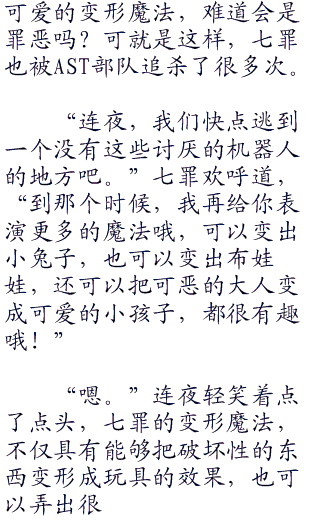 可爱的变形魔法，难道会是
罪恶吗？可就是这样，七罪
也被AST部队追杀了很多次。
“连夜，我们快点逃到
一个没有这些讨厌的机器人
的地方吧。”七罪欢呼道，
“到那个时候，我再给你表
演更多的魔法哦，可以变出
小兔子，也可以变出布娃
娃，还可以把可恶的大人变
成可爱的小孩子，都很有趣
哦！”
“嗯。”连夜轻笑着点
了点头，七罪的变形魔法，
不仅具有能够把破坏性的东
西变形成玩具的效果，也可
以弄出很